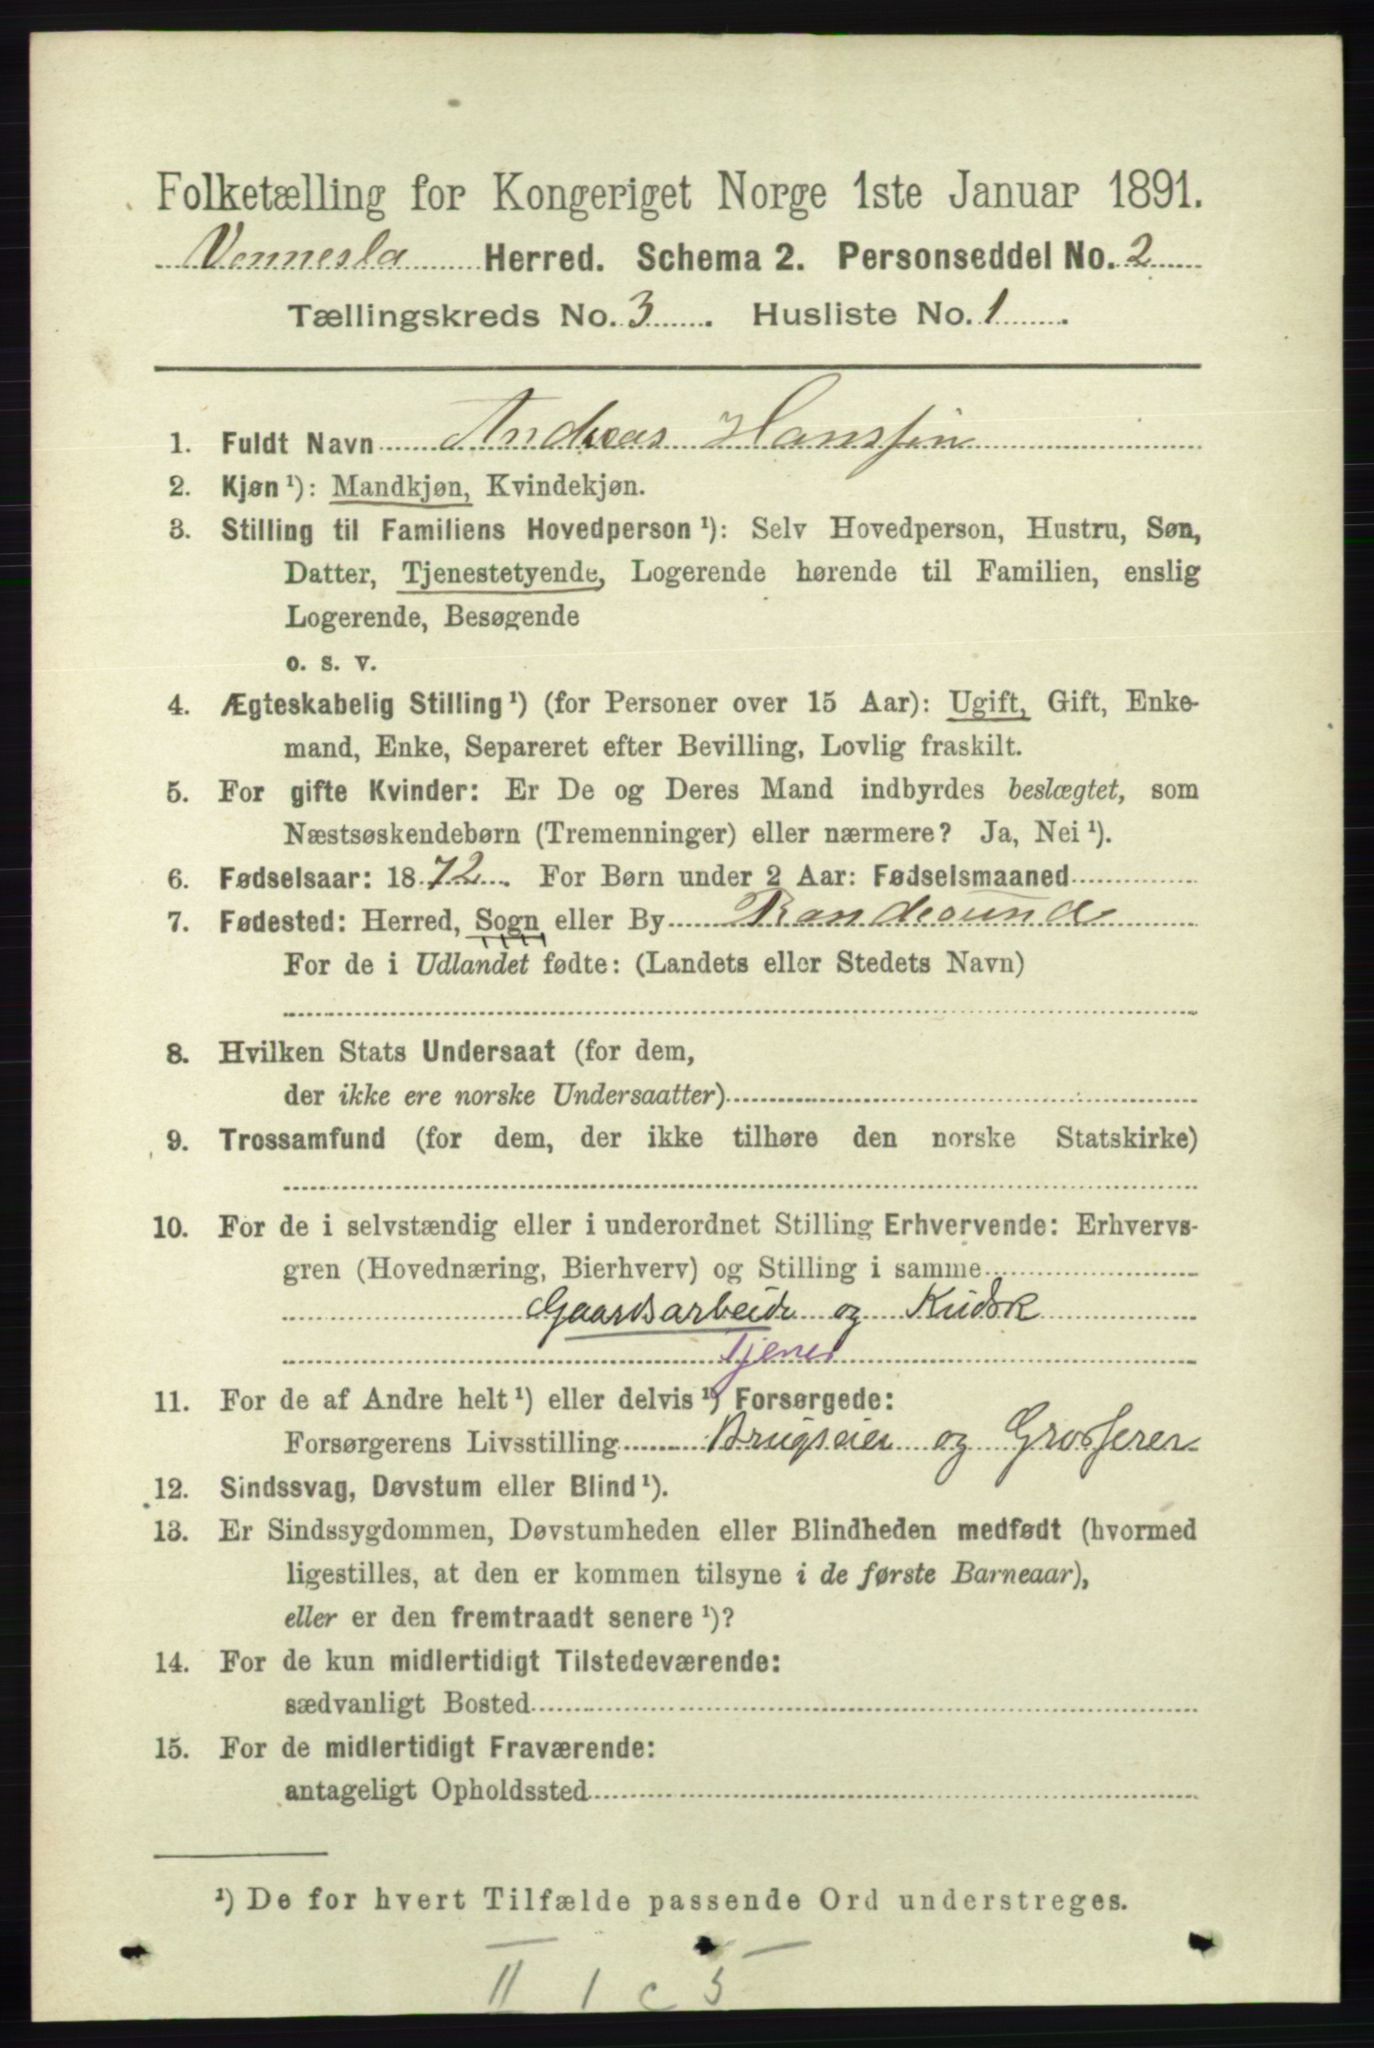 Folketælling for Kongeriget Norge 1ste Januar 1891.
Vennesla Herred. Schema 2. Personseddel No. 2
Tællingskreds No. 3. Husliste No. 1.
1. Fuldt Navn Andreas Hanssen
2. Kjøn ¹): Mandkjøn, Kvindekjøn.
3. Stilling til Familiens Hovedperson ¹): Selv Hovedperson, Hustru, Søn,
Datter, Tjenestetyende, Logerende hørende til Familien, enslig
Logerende, Besøgende
o. s. v.
4. Ægteskabelig Stilling ¹) (for Personer over 15 Aar): Ugift, Gift, Enke-
mand, Enke, Separeret efter Bevilling, Lovlig fraskilt.
5. For gifte Kvinder: Er De og Deres Mand indbyrdes beslægtet, som
Næstsøskendebørn (Tremenninger) eller nærmere? Ja, Nei ¹).
6. Fødselsaar: 1872. For Børn under 2 Aar: Fødselsmaaned
7. Fødested: Herred, Sogn eller By Randesund
For de i Udlandet fødte: (Landets eller Stedets Navn)
8. Hvilken Stats Undersaat (for dem,
der ikke ere norske Undersaatter)
9. Trossamfund (for dem, der ikke tilhøre den norske Statskirke)
10. For de i selvstændig eller i underordnet Stilling Erhvervende: Erhvervs-
gren (Hovednæring, Bierhverv) og Stilling i samme
Gaardsarbeide og Kudsk
Tjener
11. For de af Andre helt ¹) eller delvis ¹) Forsørgede:
Forsørgerens Livsstilling Brugseier og Grosserer
12. Sindssvag, Døvstum eller Blind ¹).
13. Er Sindssygdommen, Døvstumheden eller Blindheden medfødt (hvormed
ligestilles, at den er kommen tilsyne i de første Barneaar),
eller er den fremtraadt senere ¹)?
14. For de kun midlertidigt Tilstedeværende:
sædvanligt Bosted
15. For de midlertidigt Fraværende:
antageligt Opholdssted
¹) De for hvert Tilfælde passende Ord understreges.
II 1 c 5